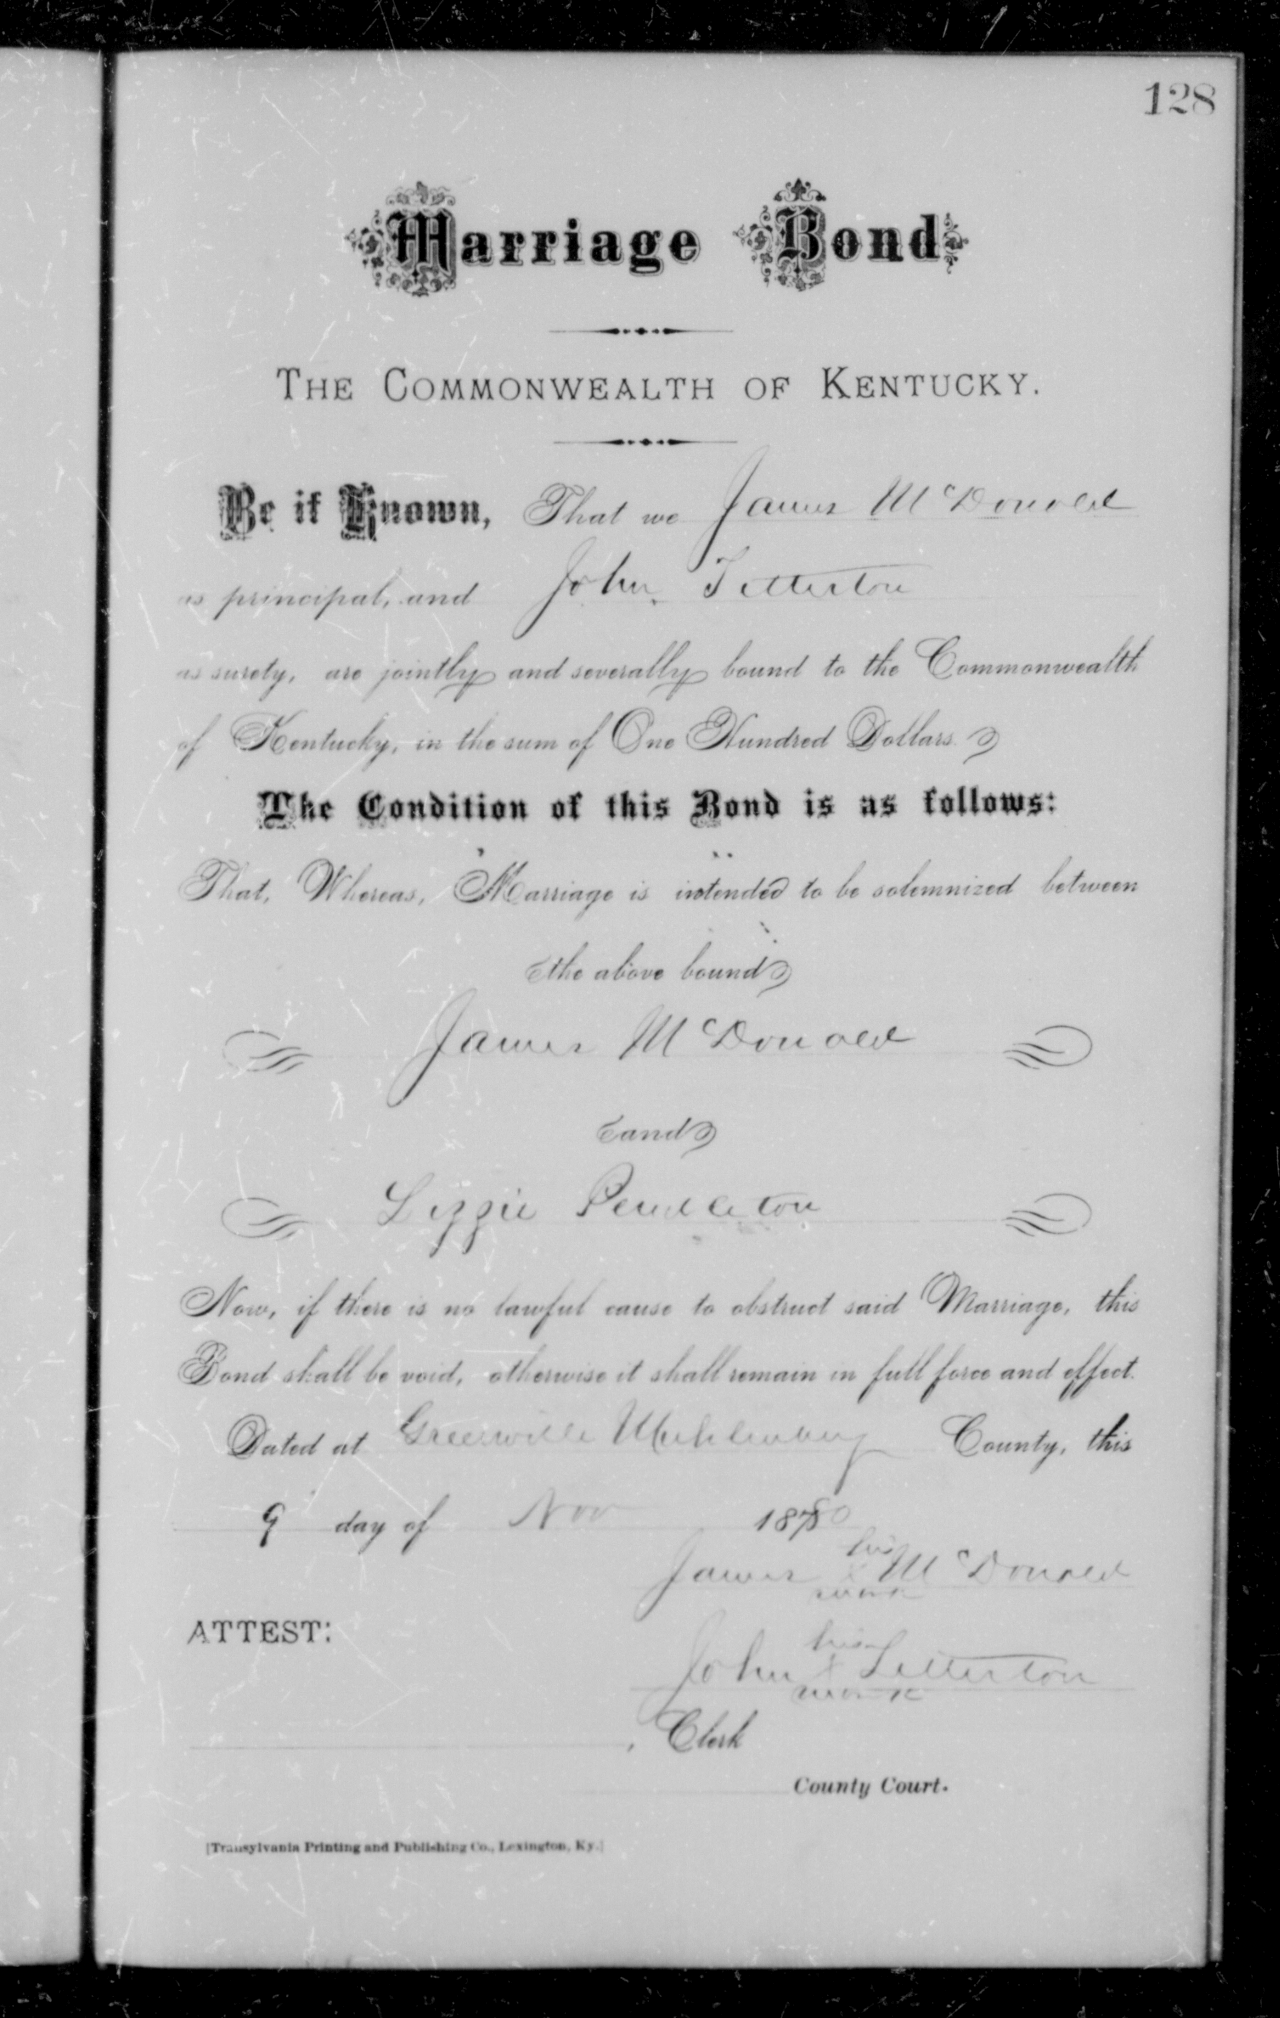 128
Marriage Bond
THE COMMONWEALTH OF KENTUCKY.
Be it Known, That we James McDonald
as principal, and John Titterton
as surety, are jointly and severally bound to the Commonwealth
of Kentucky, in the sum of One Hundred Dollars.
The Condition of this Bond is as follows:
That, Whereas, Marriage is intended to be solemnized between
the above bound
James McDonald
and
Lizzie Pendleton
Now, if there is no lawful cause to obstruct said Marriage, this
Bond shall be void, otherwise it shall remain in full force and effect.
Dated at Greenville Muhlenberg County, this
9 day of Nov 1880
his
James X McDonald
mark
ATTEST:
his
John X Titterton
mark
, Clerk
County Court.
[Transylvania Printing and Publishing Co., Lexington, Ky.]